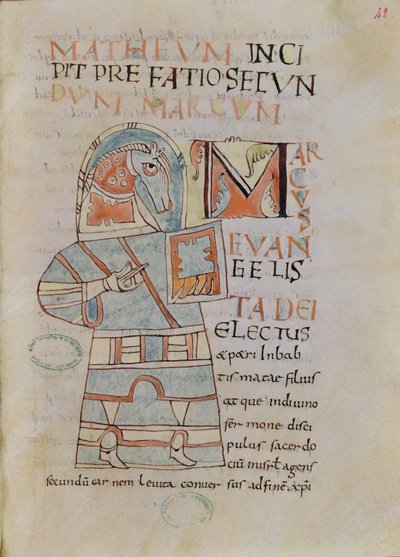 42.
MATHEUM INCI
PIT PREFATIO SECUN
DUM MARCUM
MARCUS
EVAN
GELIS
TA DEI
ELECTUS
&p&ri Inbab
tis filius
at que indivino
ser mone disci
pulus sacerdo
ciū agens
secundū car nem levita conver sus